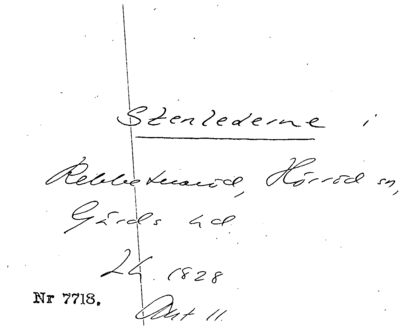 Stenlederne i
Rebbetuaröd, Hörröd sn,
Gärds hd.
24. 1828
Nr 7718.
Akt 11.